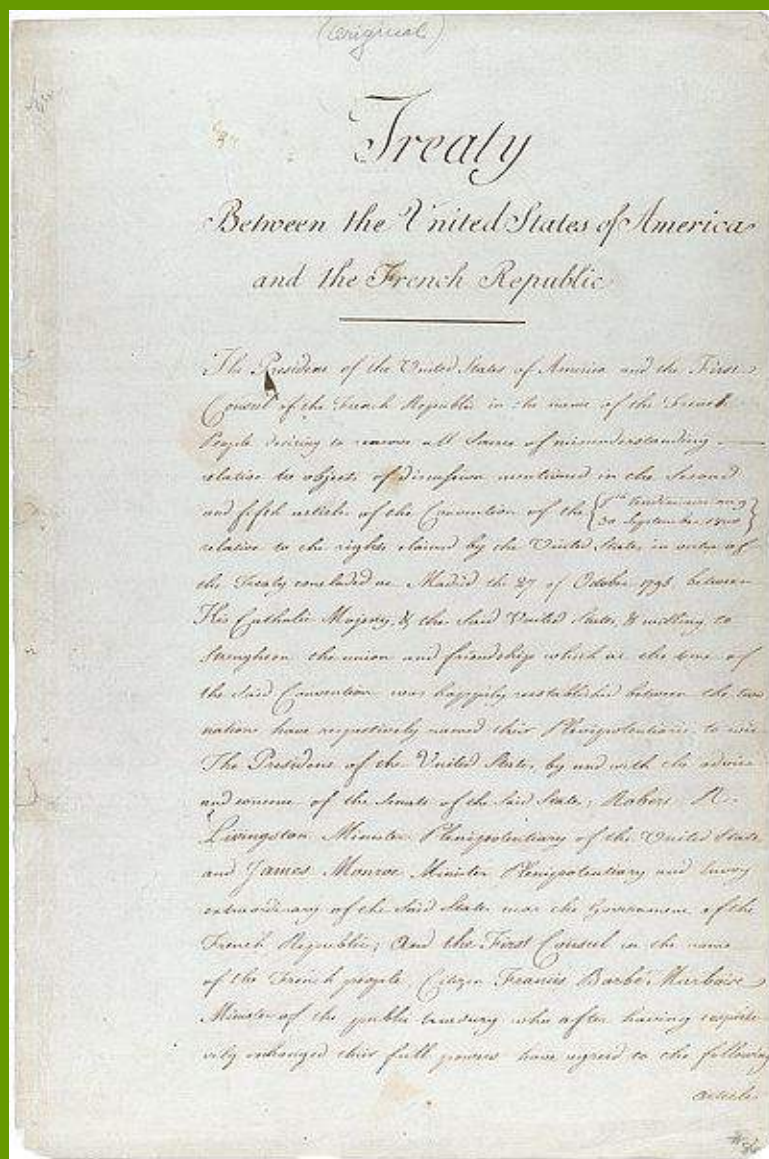 (Original)
Treaty
Between the United States of America
and the French Republic
The President of the United States of America and the First
Consul of the French Republic in the name of the French
People desiring to remove all Source of misunderstanding
relative to objects of discussion mentioned in the Second
and fifth articles of the Convention of the
30 September 1800
relative to the rights claimed by the United States in virtue of
the Treaty concluded at Madrid the 27 of October 1795, between
His Catholic Majesty, & the Said United States, & willing to
Strengthen the union and friendship which at the time of
the Said Convention was happily reestablished between the two
nations have respectively named their Plenipotentiaries to wit
The President of the United States, by and with the advice
and consent of the Senate of the Said States; Robert R.
Livingston Minister Plenipotentiary of the United States
and James Monroe Minister Plenipotentiary and Envoy
extraordinary of the Said States near the Government of the
French Republic; And the First Consul in the name
of the French people, Citizen Francis Barbé Marbois
Minister of the public treasury who after having respecti-
vely exchanged their full powers have agreed to the following
articles